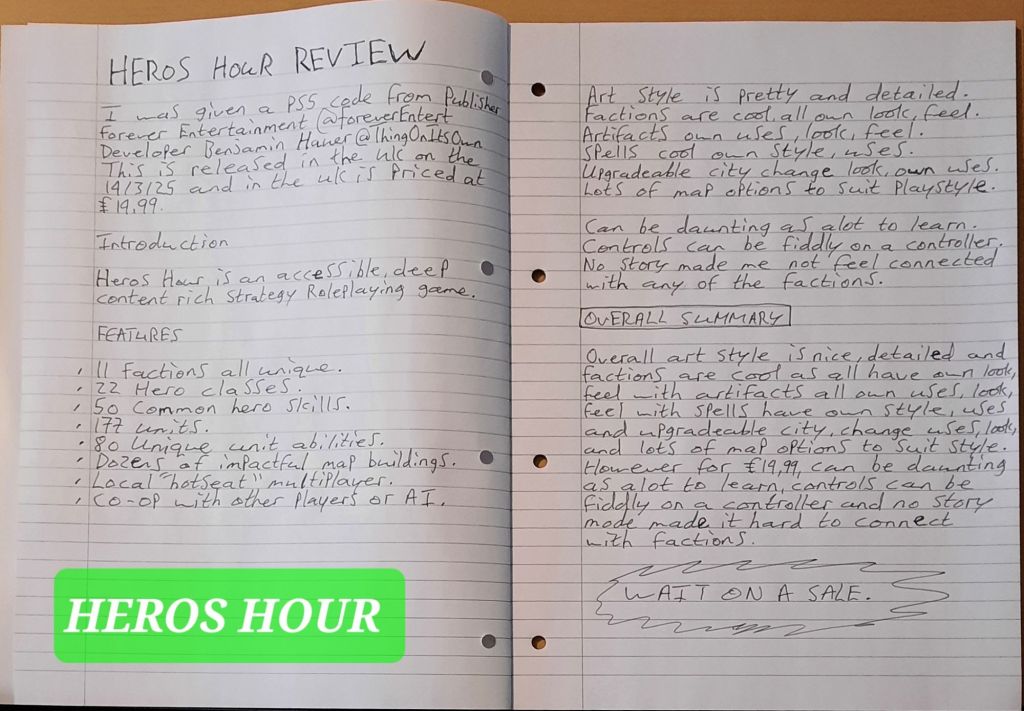 HEROS HOUR REVIEW
I was given a PS5 code from Publisher
Forever Entertainment (@foreverEntert
Developer Benjamin Hauer @ThingOnItsOwn
This is released in the UK on the
14/3/25 and in the uk is priced at
£19.99.
Introduction
Heros Hour is an accessible, deep
content rich Strategy Roleplaying game.
FEATURES
, 11 Factions all unique.
, 22 Hero classes.
, 50 Common hero skills.
, 177 units.
, 80 Unique unit abilities.
, Dozens of impactful map buildings.
, Local "hotseat" multiplayer.
, CO-OP with other Players or AI.
HEROS HOUR
Art Style is pretty and detailed.
Factions are cool, all own look, feel.
Artifacts own uses, look, feel.
Spells cool own style, uses.
Upgradeable city change look, own uses.
Lots of map options to suit Playstyle.
Can be daunting as alot to learn.
Controls can be fiddly on a controller.
No Story made me not feel connected
with any of the factions.
OVERALL SUMMARY
Overall art style is nice, detailed and
factions are cool as all have own look,
feel with artifacts all own uses, look,
feel with spells have own style, uses
and upgradeable city, change uses, look,
and lots of map options to suit style.
However for £19,99, can be daunting
as alot to learn, controls can be
fiddly on a controller and no story
mode made it hard to connect
with factions.
WAIT ON A SALE.